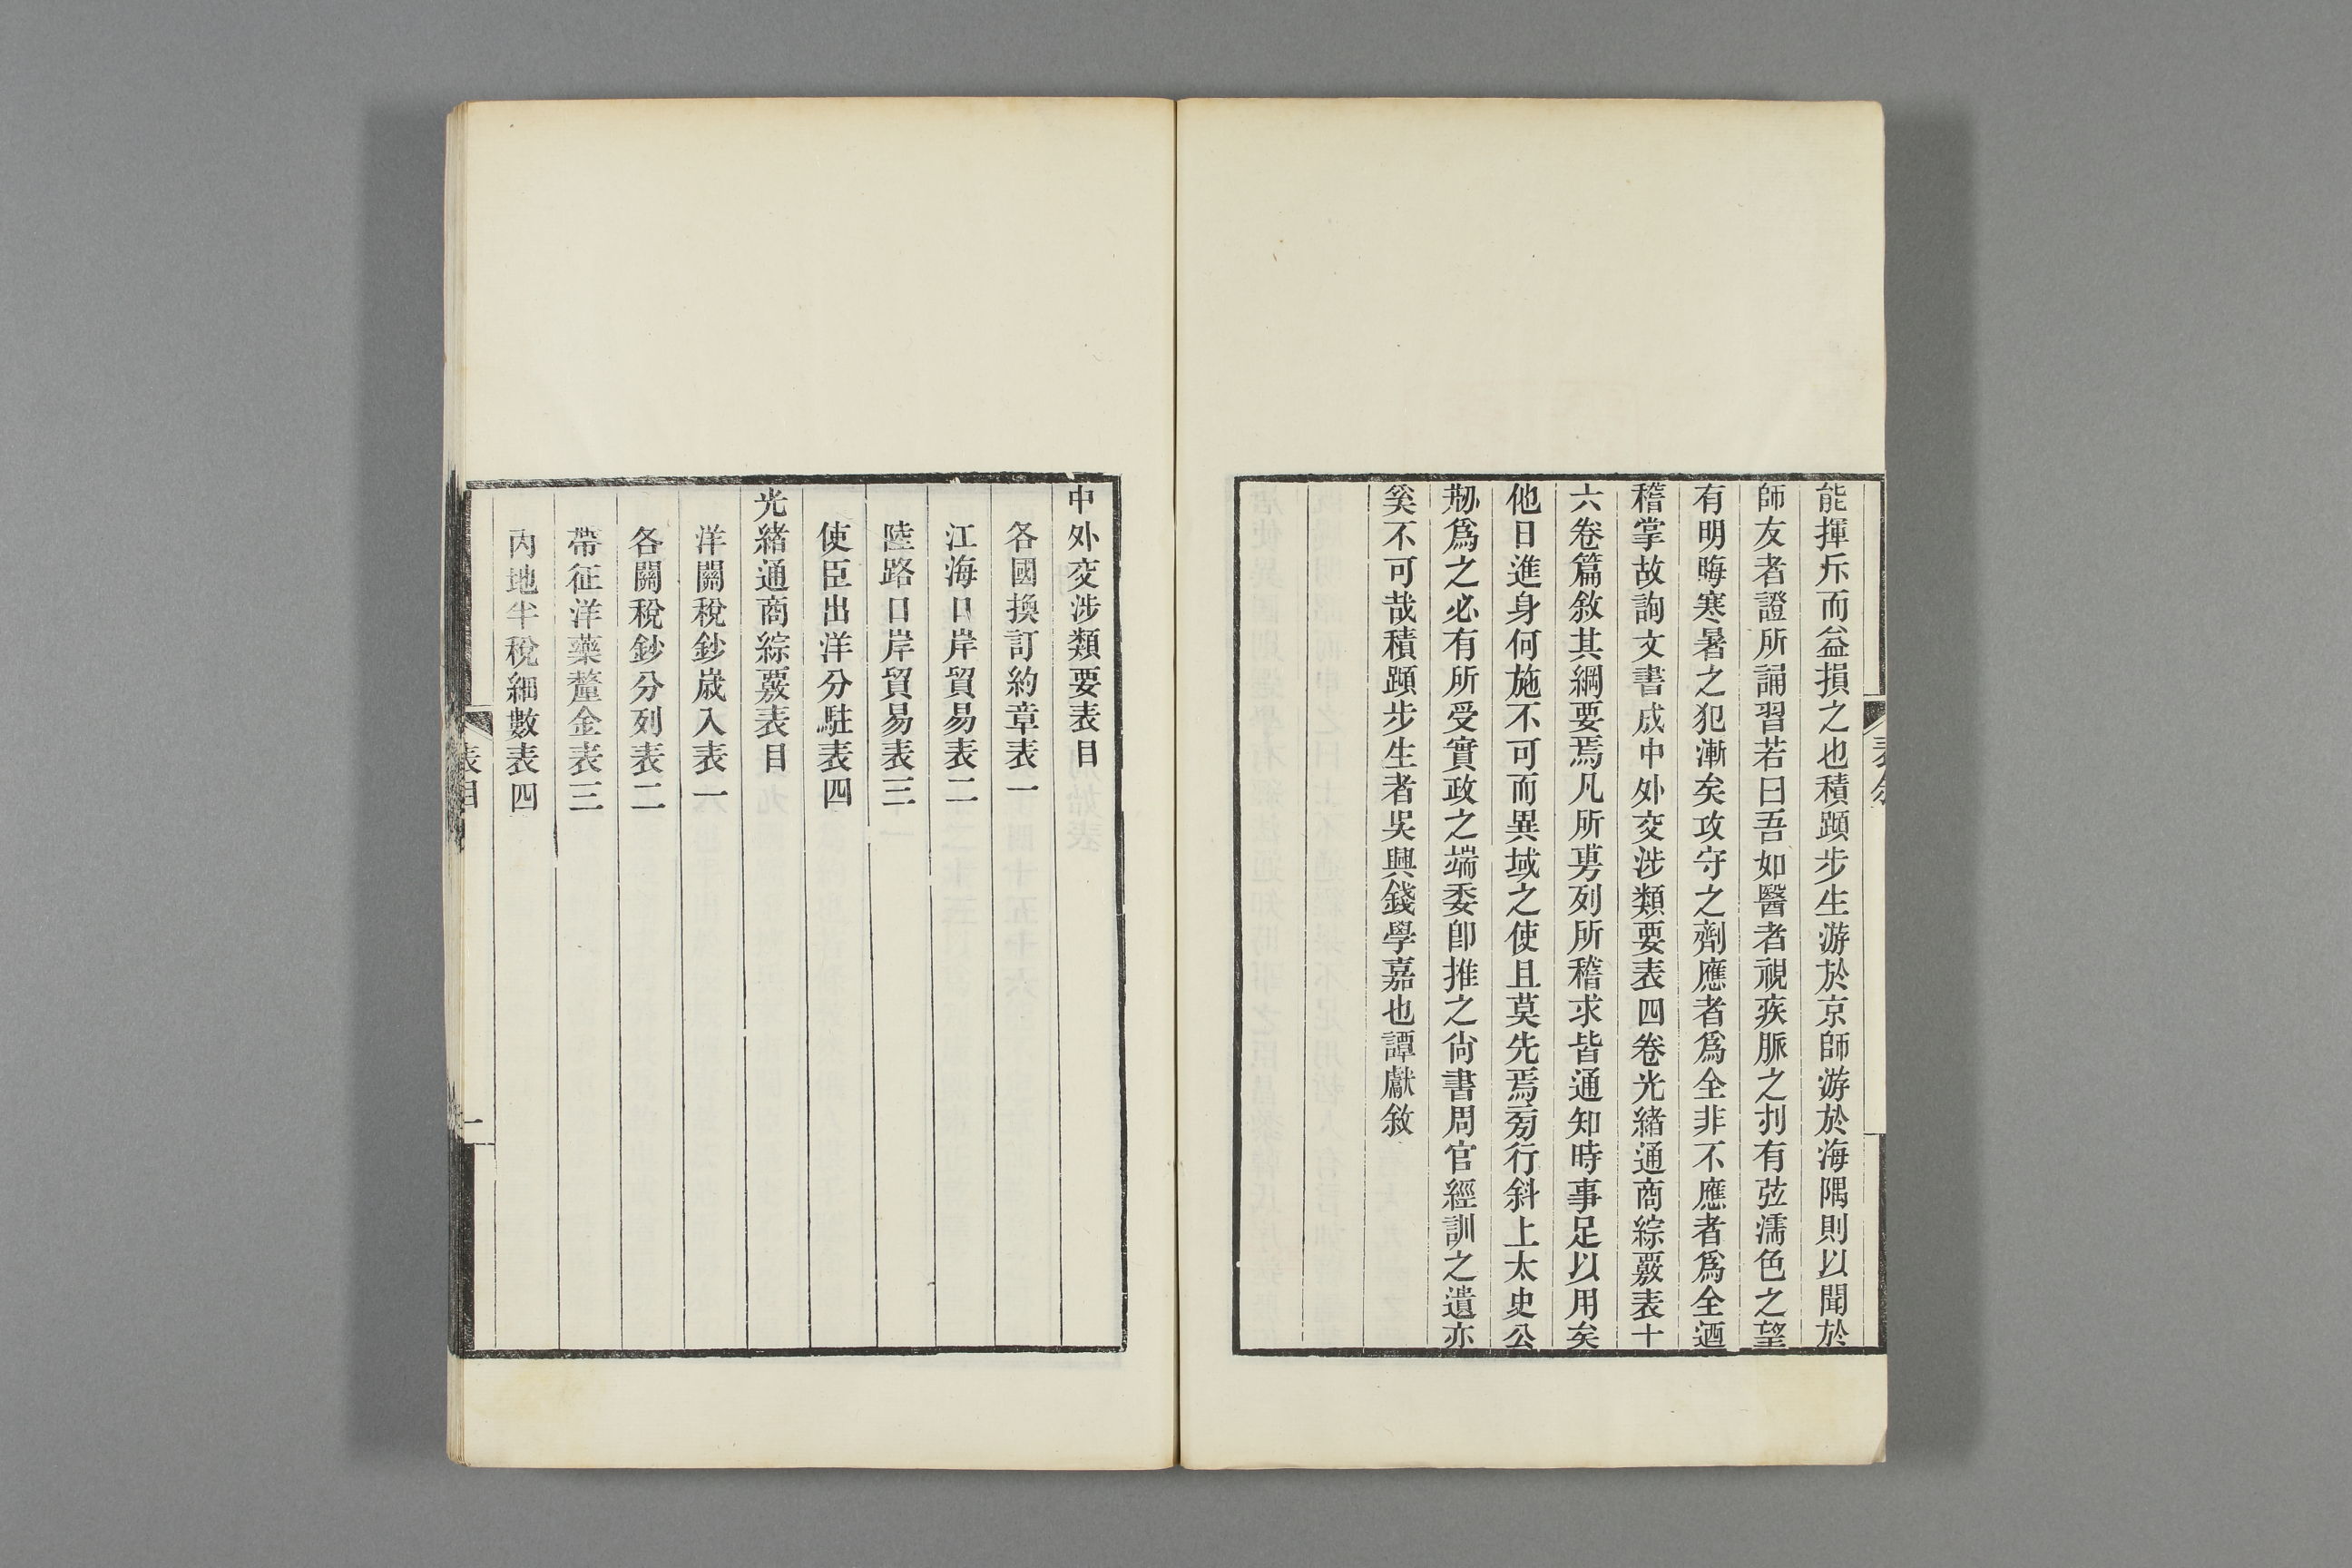 能揮斥而益損之也積蹞步生游於京師游於海隅則以聞於
師友者證所誦習若曰吾如醫者視疾脈之刌有弦濡色之望
有明晦寒暑之犯漸矣攻守之劑應者爲全非不應者爲全迺
稽掌故詢文書成中外交涉類要表四卷光緒通商綜覈表十
六卷篇敘其綱要焉凡所旉列所稽求皆通知時事足以用矣
他日進身何施不可而異域之使且莫先焉旁行斜上太史公
刱爲之必有所受實政之端委卽推之尙書周官經訓之遺亦
奚不可哉積蹞步生者吳興錢學嘉也譚獻敘
中外交涉類要表目
各國換訂約章表一
江海口岸貿易表二
陸路口岸貿易表三
使臣出洋分駐表四
光緒通商綜覈表目
洋關稅鈔歲入表一
各關稅鈔分列表二
帶征洋藥釐金表三
內地半稅細數表四
表目
一